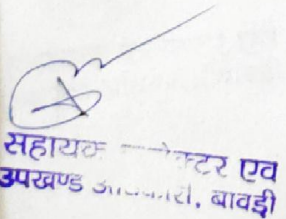 सहायक ...क्टर एव
उपखण्ड अ...कारी, बावड़ी